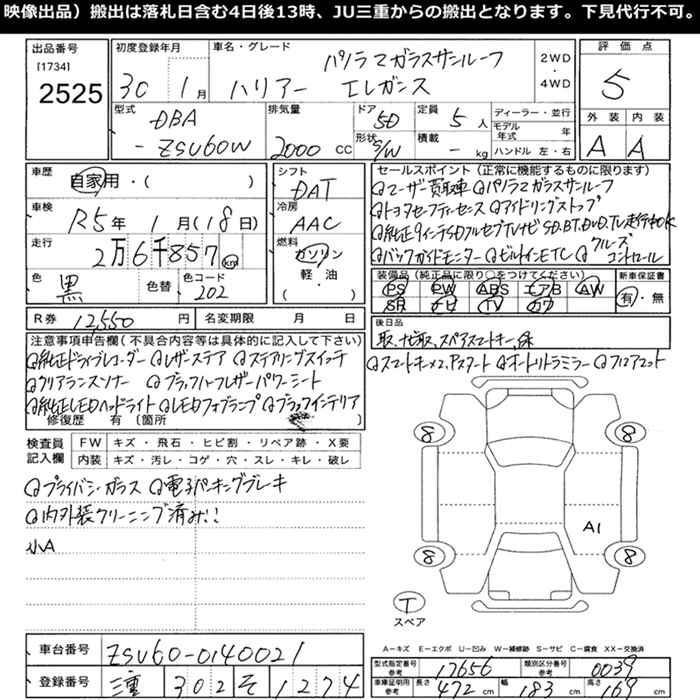 映像出品）搬出は落札日含む4日後13時、JU三重からの搬出となります。下見代行不可。
出品番号
[1734]
2525
初度登録年月
30 1月
車名・グレード
パノラマガラスサンルーフ
ハリアー エレガンス
2WD
・
4WD
評価点
5
型式
DBA
-ZSU60W
排気量
2000 CC
ドア
5D
形状
S/W
定員
5人
積載
- kg
ディーラー・並行
モデル年式 年
ハンドル 左・右
外装 内装
A A
車歴
自家用・( )
車検
R5年 1月(18日)
走行
2万6千857km
色
黒
色替
色コード
202
シフト
DAT
冷房
AAC
燃料
ガソリン
軽・油
( )
セールスポイント（正常に機能するものに限ります）
ユーザー買取車 パノラマガラスサンルーフ
トヨタセーフティセンス アイドリングストップ
純正9インチSDフルセグTVナビ SD.BT.DVD.TV走行中OK
バックガイドモニター ビルトインETC クルーズコントロール
装備品（純正品に限り○をつけてください）
PS PW ABS エアB AW
SR ナビ TV カワ
新車保証書
有・無
R券 12,550円
名変期限 月 日
後日品
取、ナビ取、スペアスマートキー、録
注意事項申告欄（不具合内容等は具体的に記入して下さい）
純正ドライブレコーダー レザーステア ステアリングスイッチ
スマートキー×2、Pスタート オートリトラミラー フロアマット
クリアランスソナー ブラックハーフレザーパワーシート
純正LEDヘッドライト LEDフォグランプ ブラックインテリア
修復歴 有（箇所
検査員
記入欄
FW キズ・飛石・ヒビ割・リペア跡・X要
内装 キズ・汚レ・コゲ・穴・スレ・キレ・破レ
プライバシーガラス 電子パーキングブレーキ
内外装クリーニング済み!!
小A
8 8
A1
8 8
T
スペア
A－キズ E－エクボ U－凹み W－補修跡 S－サビ C－腐食 XX－交換済
車台番号 ZSU60-0140021
登録番号 三重 302 そ 1274
型式指定番号参考 17656
類別区分番号参考 0039
車庫証明用参考 長さ 472cm 幅 183cm 高さ 169cm